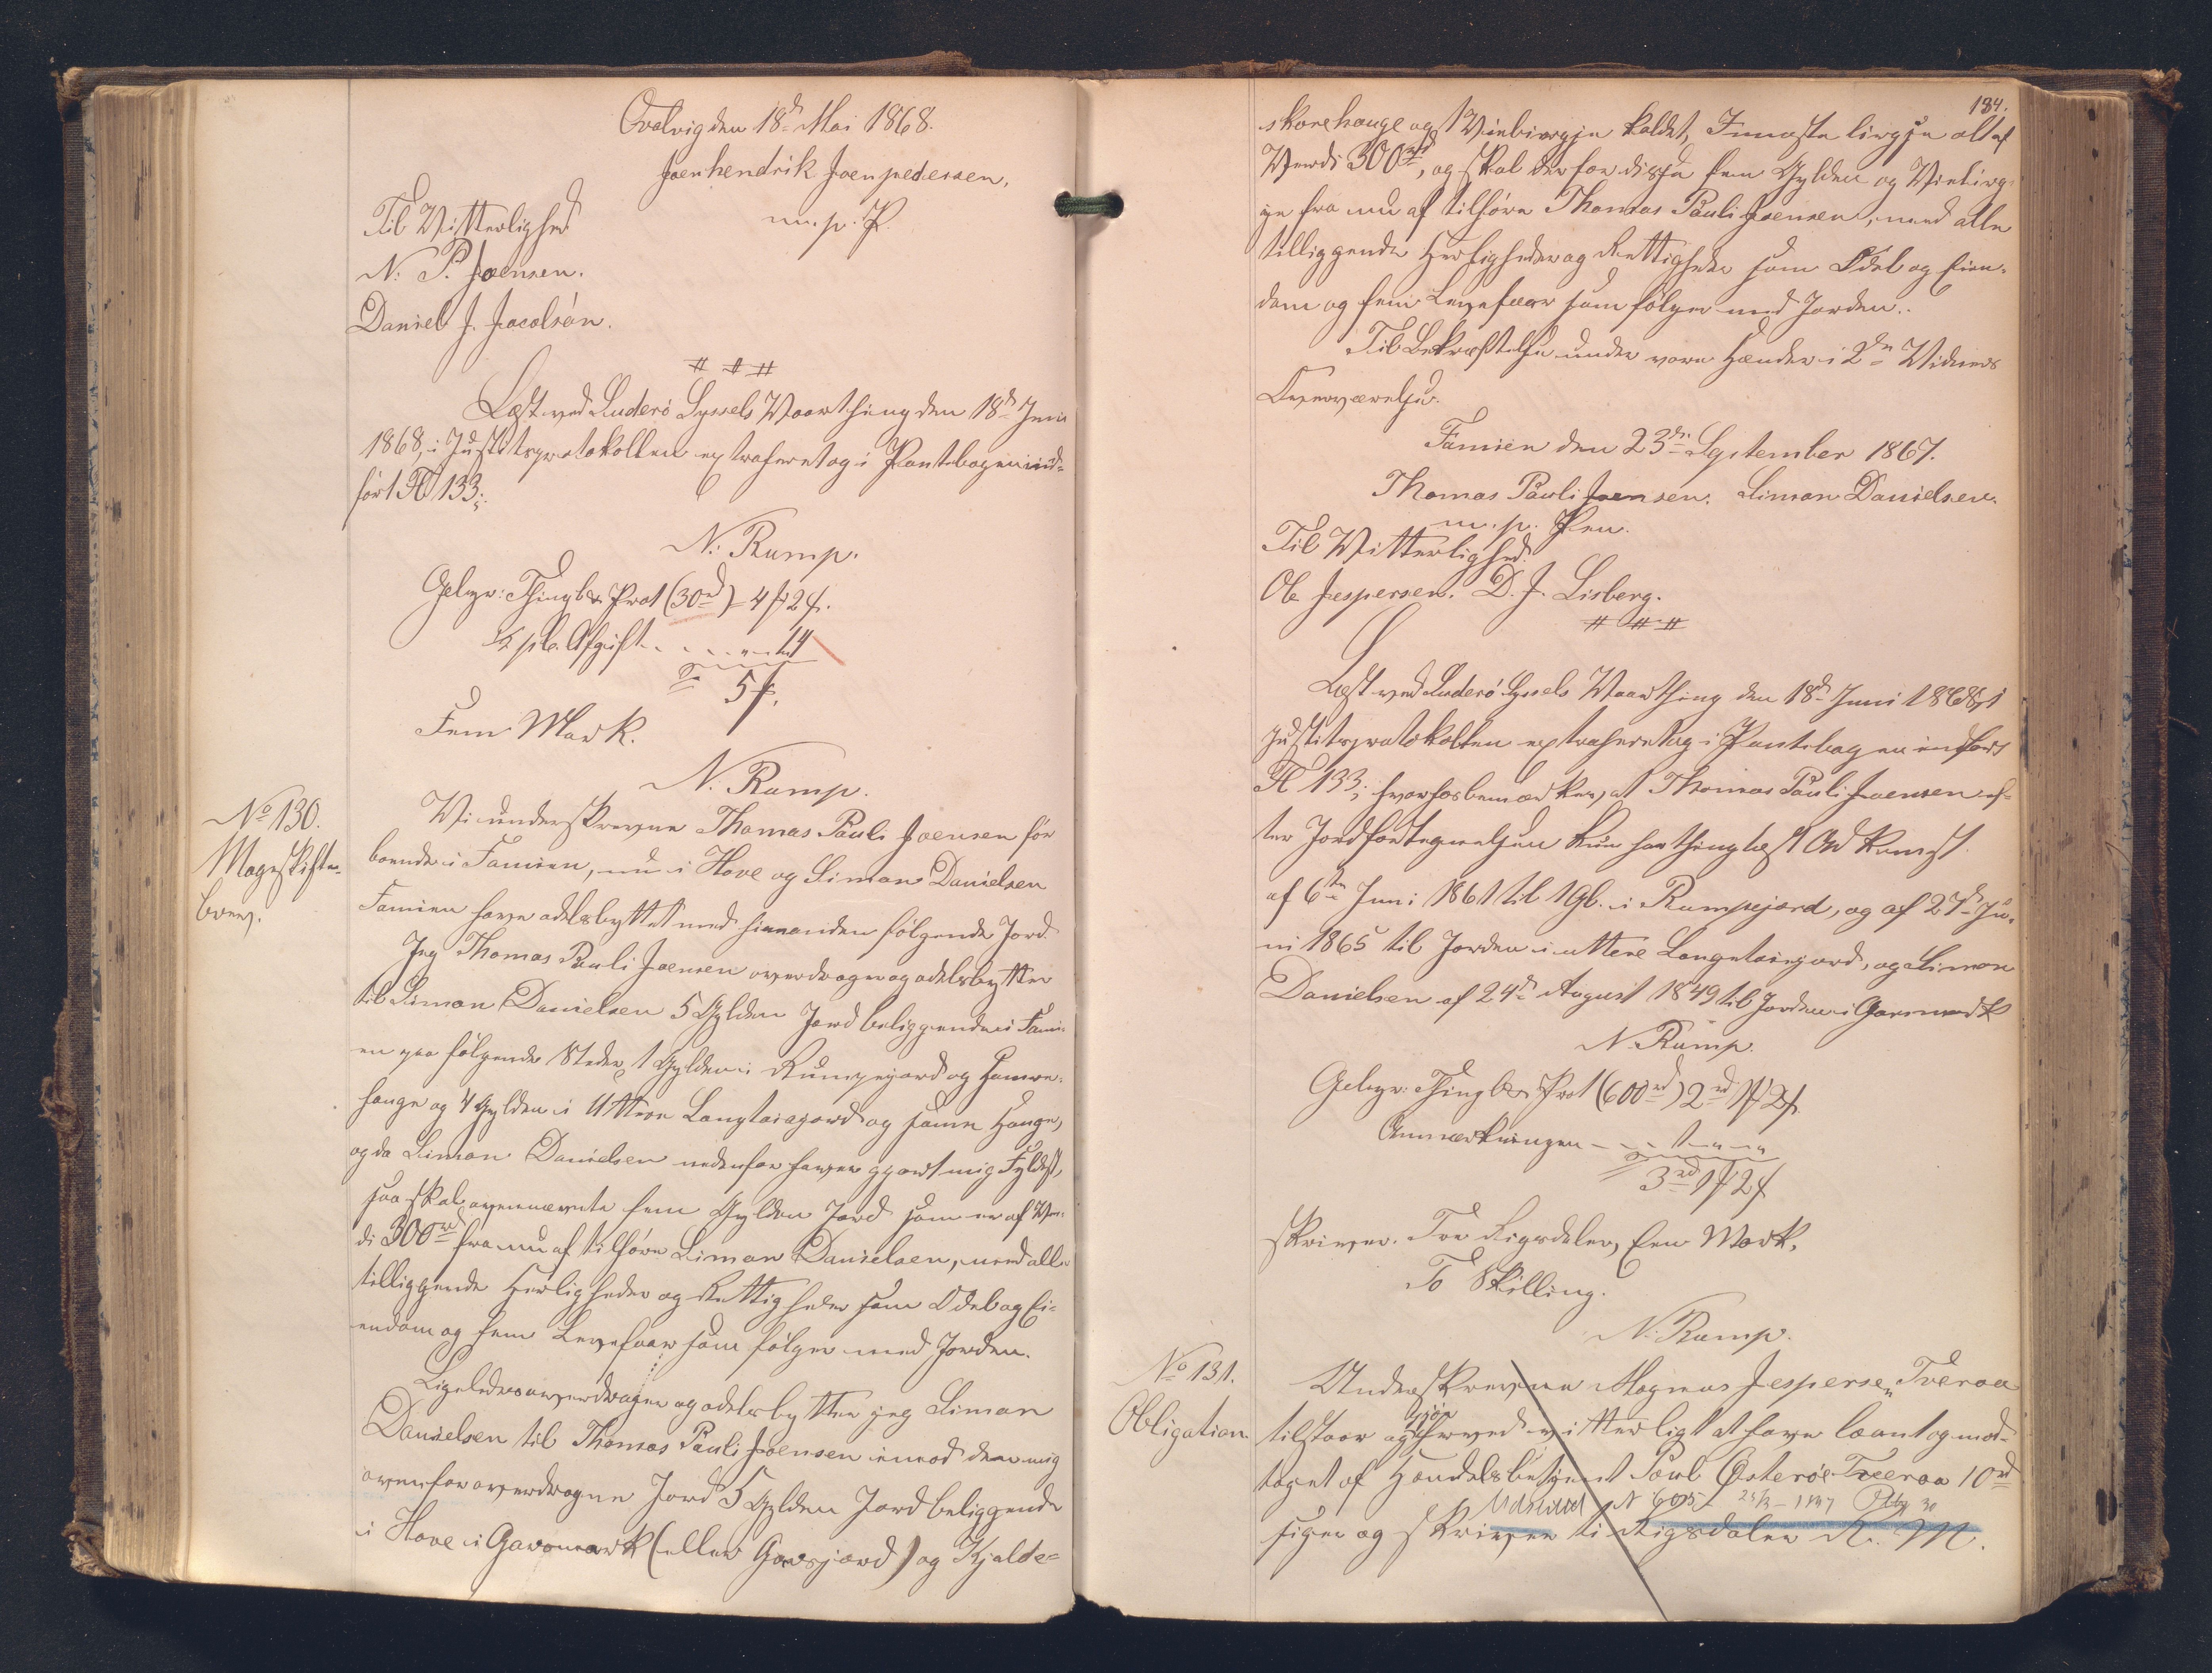 Qvalvig den 18d Mai 1868.
Joenhendrik Joenpedersen.
m. p. P.
Til Vitterlighed
N. P. Joensen.
Daniel J. Jacobsen.
# # #
Læst ved Suderö Syssels Vaarthing den 18d Juni
1868, i Justitsprotokollen extraheret og i Pantebogen ind-
ført Fol 133;
N. Rump.
Gebyr: Thingl. & Prot (30rd) = 4 ꝑ 2 ꝑ.
½ pC. Afgift . . . . „ 14
= 5 ꝑ.
Fem Mark.
N. Rump.
No 130.
Mageskifte-
brev.
Vi underskrevne Thomas Pauli Joensen før
boende i Famien, nu i Hove og Simon Danielsen
Famien have odelsbyttet med hinanden følgende Jord.
Jeg Thomas Pauli Joensen overdrager og odelsbytter
til Simon Danielsen 5 Gylden Jord beliggende i Fami-
en paa følgende Steder, 1 Gylden i Rumpejord og Hamre-
hauge og 4 Gylden i Uttere Langtaiajord og samme Hauge,
og da Simon Danielsen nedenfor haver gjort mig Fyldest,
saa skal ovennævnte fem Gylden Jord som er af Vær-
di 300rd fra nu af tilhøre Simon Danielsen, med alle
tilliggende Herligheder og Rettigheder som Odel og Ei-
endom og fem Levefaar som følger med Jorden.
Ligeledes overdrager og odelsbytter jeg Simon
Danielsen til Thomas Pauli Joensen imod den mig
ovenfor overdragne Jord 5 Gylden Jord beliggende
i Hove i Garsmark (eller Garsjord) og Kjalde-
184.
skorehauge og 1 Viebirgje kaldet, Innaste birgje alt af
Værdi 300rd, og skal derfor disse fem Gylden og Viebirg-
je fra nu af tilhøre Thomas Pauli Joensen, med alle
tilliggende Herligheder og Rettigheder som Odel og Eien-
dom og fem Levefaar som følger med Jorden.
Til Bekræftelse under vore Hænder i 2de Vidners
Overværelse.
Famien den 23de September 1867.
Thomas Pauli Joensen. Simon Danielsen.
m. p. Pen.
Til Vitterlighed.
Ole Jespersen. D. J. Lisberg.
# # #
Læst ved Suderö Syssels Vaarthing den 18d Juni 1868, i
Justitsprotokollen extraheret og i Pantebogen indført
Fol 133; hvorhos bemærkes, at Thomas Pauli Joensen ef-
ter Jordfortegnelsen kun har thinglæst Adkomst
af 6te Juni 1861 til 1 Gl. i Rumpejord, og af 27d Ju-
ni 1865 til Jorden i uttere Langetaiajord, og Simon
Danielsen af 24d August 1849 til Jorden i Garsmark
N. Rump.
Gebyr: Thingl. & Prot (600rd) 2rd 1 ꝑ 2 ꝑ
Anmærkningen - - - 1 „ „
3rd 1 ꝑ 2 ꝑ
skriver. Tre Rigsdaler, Een Mark,
To Skilling.
N. Rump.
No 131.
Obligation
Underskrevne Magnus Jespersen Tveraa
tilstaar og gjør herved vitterligt at have laant og mod-
taget af Handelsbetjent Poul Østerøe Tveraa 10rd
Udslettet
siger og skriver ti Rigsdaler R. M.